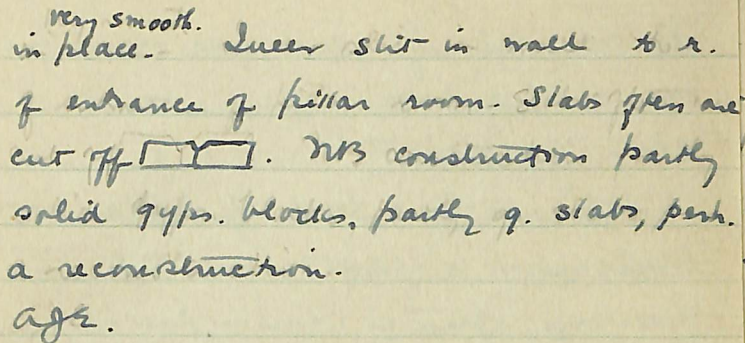 very smooth.
in place. Queer slit in wall to r.
of entrance of pillar room. Slabs often are
cut off. NB construction partly
solid gyps. blocks, partly g. slabs, perh.
a reconstruction.
AJE.